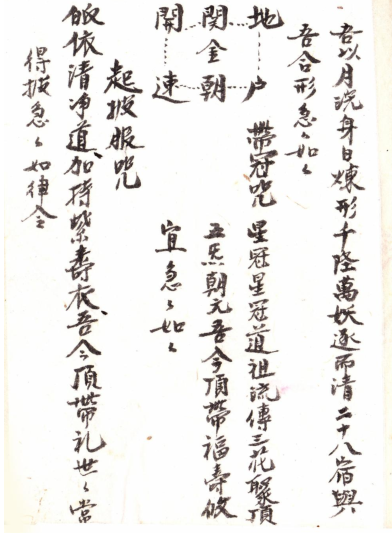 吾以月洗身日煉形千隆萬妖逐而清二十八宿與
吾合形急〻如〻
地户
閔金朝
開速
帶冠咒 星冠星冠道祖流傳三花聚頂
五炁朝元吾今頂帶福壽攸
宜急〻如〻
起披服咒
皈依清净道、加持紫壽衣、吾今頂帶礼世〻當
得披急〻如律令